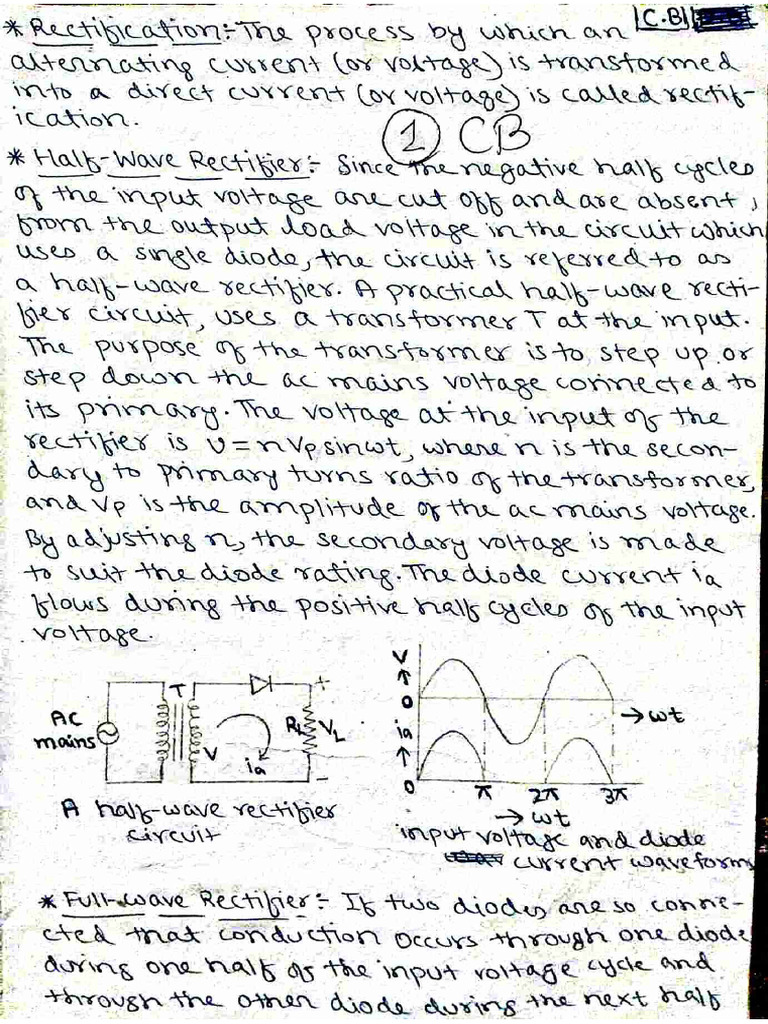 C.B
* Rectification:- The process by which an
alternating current (or voltage) is transformed
into a direct current (or voltage) is called rectif-
ication.
1 CB
* Half-Wave Rectifier:- Since the negative half cycles
of the input voltage are cut off and are absent,
from the output load voltage in the circuit which
uses a single diode, the circuit is referred to as
a half-wave rectifier. A practical half-wave recti-
fier circuit, uses a transformer T at the input.
The purpose of the transformer is to step up or
step down the ac mains voltage connected to
its primary. The voltage at the input of the
rectifier is v = nVp sinωt, where n is the secon-
dary to primary turns ratio of the transformer,
and Vp is the amplitude of the ac mains voltage.
By adjusting n, the secondary voltage is made
to suit the diode rating. The diode current ia
flows during the positive half cycles of the input
voltage.
AC
mains
T
V
ia
+
RL
VL
-
A half-wave rectifier
circuit
V
0
→ωt
ia
0
π 2π 3π
→ωt
input voltage and diode
current waveforms
* Full-wave Rectifier:- If two diodes are so conne-
cted that conduction occurs through one diode
during one half of the input voltage cycle and
through the other diode during the next half